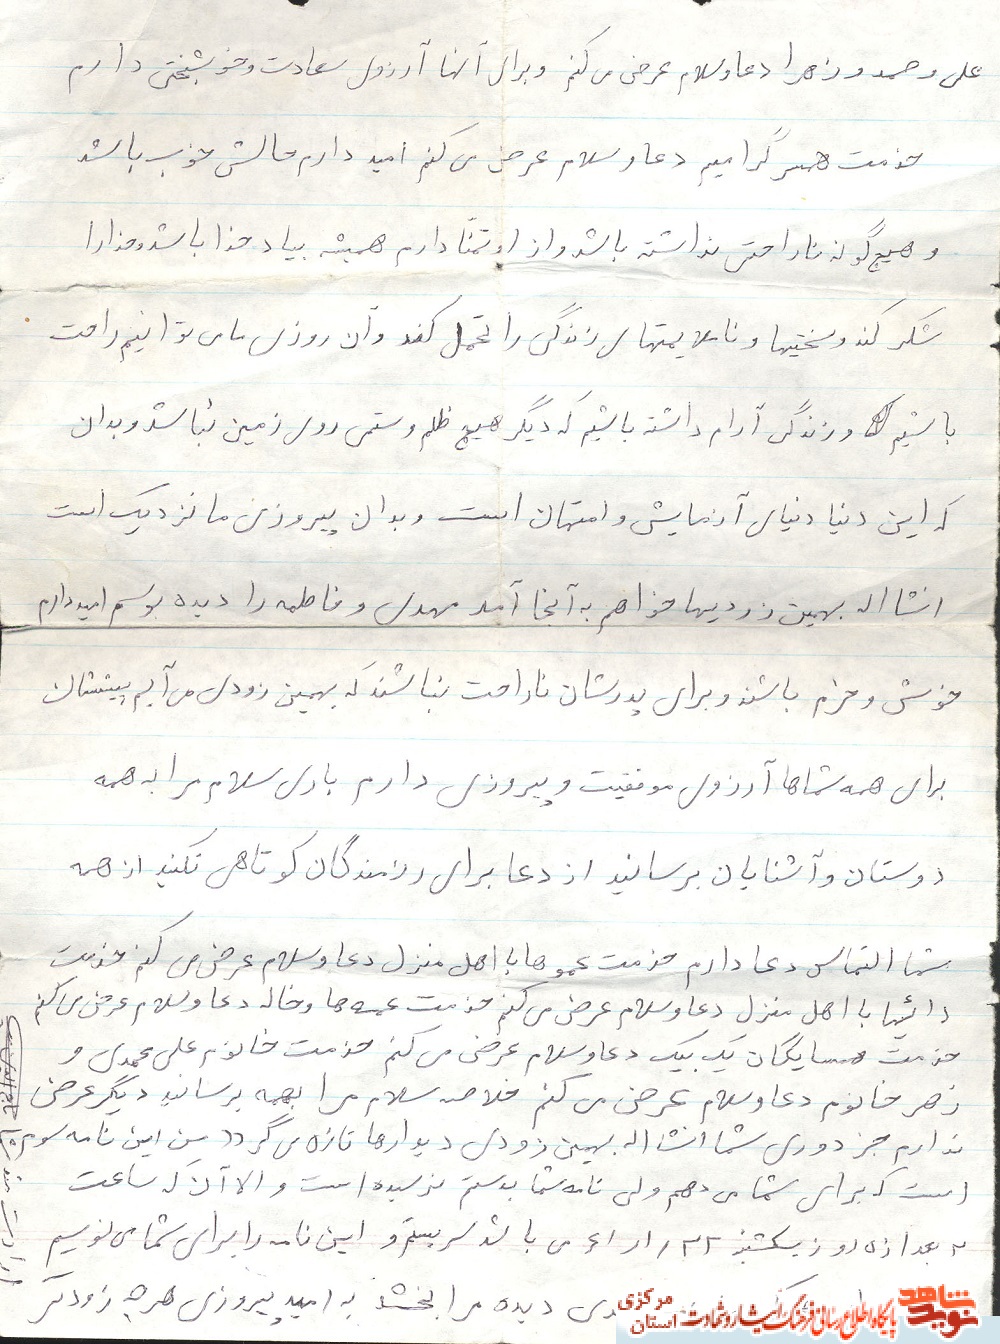 علی و صمد و زهرا دعا و سلام عرض می کنم و برای آنها آرزوی سعادت و خوشبختی دارم
خدمت همسر گرامیم دعا و سلام عرض می کنم امید دارم حالش خوب باشد
و هیچ گونه ناراحتی نداشته باشد و از او تمنا دارم همیشه بیاد خدا باشد و خدا را
شکر کند و سختیها و ناملایمتهای زندگی را تحمل کند و آن روزی ما می توانیم راحت
باشیم و زندگی آرام داشته باشیم که دیگر هیچ ظلم و ستمی روی زمین نباشد و بدان
که این دنیا دنیای آزمایش و امتهان است و بدان پیروزی ما نزدیک است
انشااله بهمین زودیها خواهم به آنجا آمد مهدی و فاطمه را دیده بوسم امیدوارم
خوش و خرم باشند و برای پدرشان ناراحت نباشند که بهمین زودی می آیم پیششان
برای همه شماها آرزوی موفقیت و پیروزی دارم باری سلام مرا به همه
دوستان و آشنایان برسانید از دعا برای رزمندگان کوتاهی نکنید از همه
شما التماس دعا دارم خدمت عموها با اهل منزل دعا و سلام عرض می کنم خدمت
دائیها با اهل منزل دعا و سلام عرض می کنم خدمت عمه ها و خاله دعا و سلام عرض می کنم
خدمت همسایگان یک بیک دعا و سلام عرض می کنم خدمت خانوم علی محمدی و
زهرا خانوم دعا و سلام عرض می کنم خلاصه سلام مرا بهمه برسانید دیگر عرضی
ندارم جز دوری شما انشااله بهمین زودی دیدارها تازه می گردد من این نامه سوم
است که برای شما می دهم ولی نامه شما بدستم نرسیده است و الا آن که ساعت
۲ بعد از ظهر روز یکشنبه می باشد و این نامه را برای شما می نویسم
دیده مرا بخشد به امید پیروزی هر چه زودتر
نوید شاهد
پایگاه اطلاع رسانی فرهنگ ایثار و شهادت
استان مرکزی